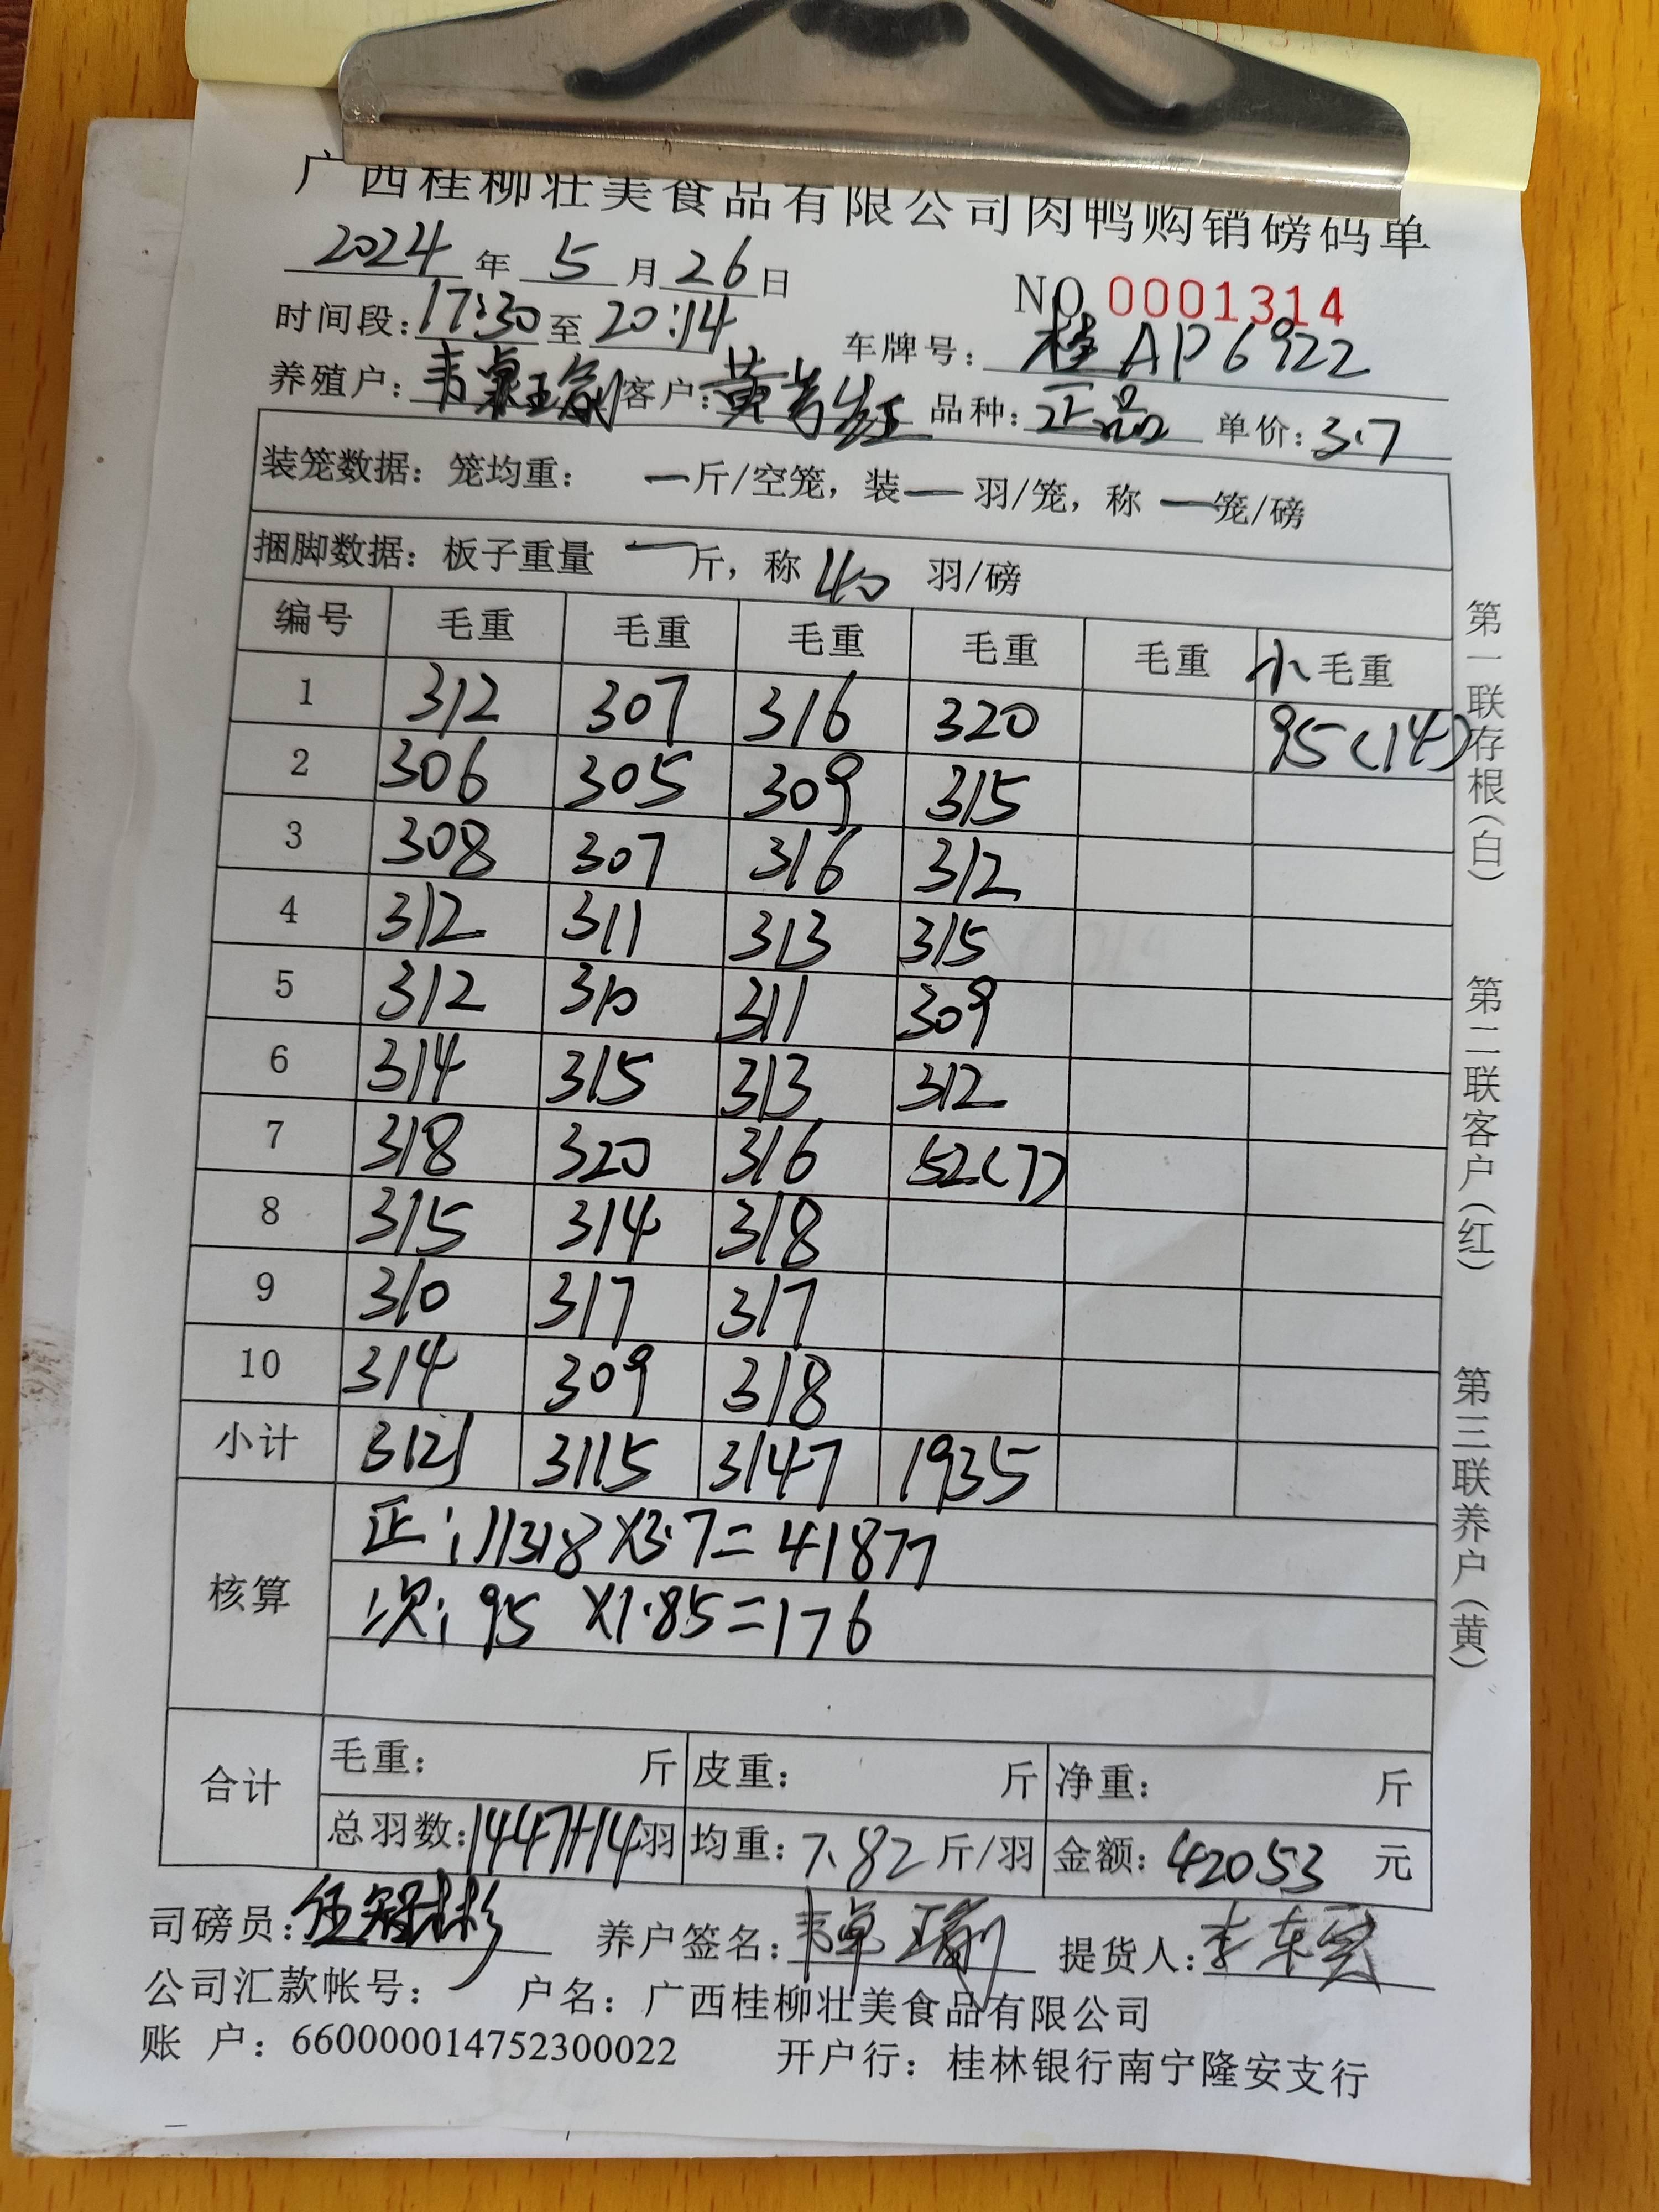 广西桂柳壮美食品有限公司肉鸭购销磅码单
2024年5月26日
NO 0001314
时间段:17:30至20:14 车牌号:桂AP6922
养殖户:韦卓瑜 客户:黄 红 品种:正品 单价:3.7
装笼数据:笼均重: 一斤/空笼,装一羽/笼,称一笼/磅
捆脚数据:板子重量 一斤,称40羽/磅
编号 毛重 毛重 毛重 毛重 毛重 小毛重
1 312 307 316 320 95(14)
2 306 305 309 315
3 308 307 316 312
4 312 311 313 315
5 312 310 311 309
6 314 315 313 312
7 318 320 316 52(7)
8 315 314 318
9 310 317 317
10 314 309 318
小计 3121 3115 3147 1935
核算 正:11318×3.7=41877
次:95×1.85=176
合计 毛重: 斤 皮重: 斤 净重: 斤
总羽数:1447+14羽 均重:7.82斤/羽 金额:42053元
司磅员:伍冠彬 养户签名:韦卓瑜 提货人:李东
公司汇款帐号: 户名:广西桂柳壮美食品有限公司
账 户:660000014752300022 开户行:桂林银行南宁隆安支行
第一联存根(白) 第二联客户(红) 第三联养户(黄)